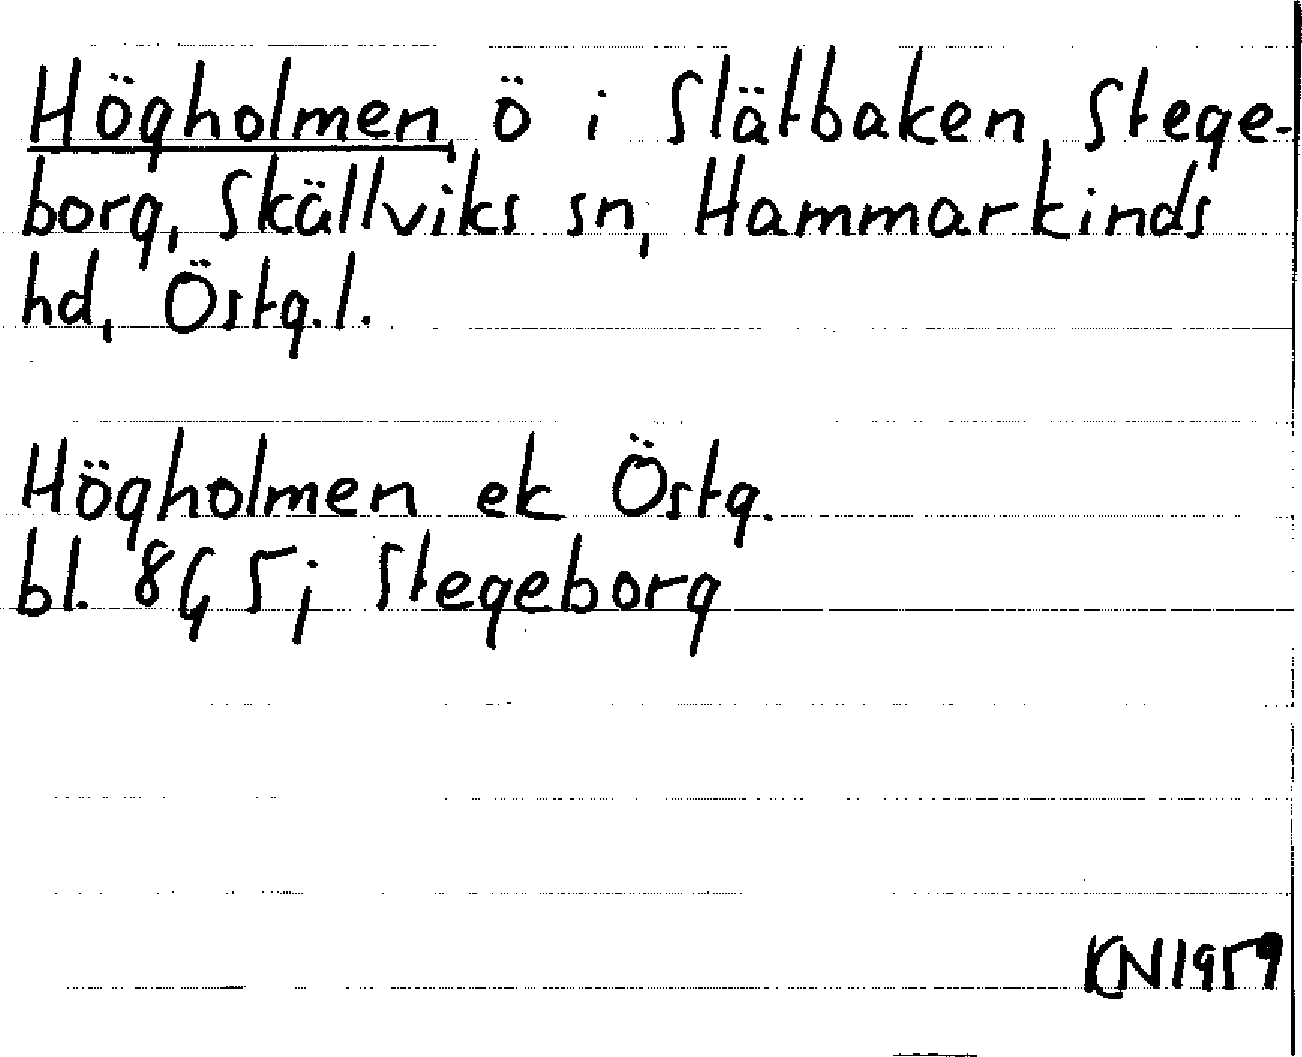 Högholmen, ö i Slätbaken, Stege-
borg, Skällviks sn, Hammarkinds
hd, Östg.l.
Högholmen ek Östg.
bl. 8G 5j Stegeborg
KN1959